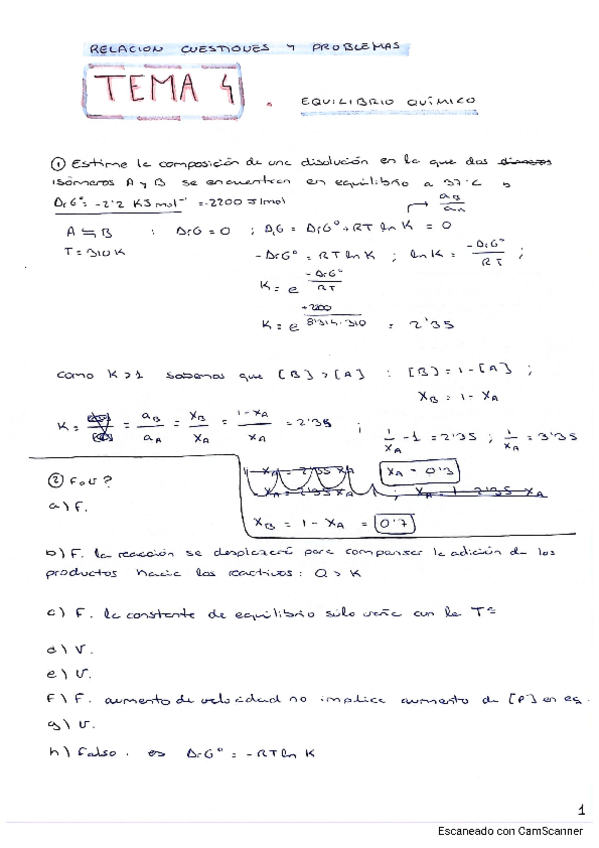 RELACION CUESTIONES Y PROBLEMAS
TEMA 4. EQUILIBRIO QUÍMICO
① Estime la composición de una disolución en la que dos
isómeros A y B se encuentran en equilibrio a 37ºC y
ΔrGº = -2'2 KJ mol⁻¹ = -2200 J/mol
A ⇆ B : ΔrG = 0 ; ΔrG = ΔrGº + RT ln K = 0 → aB/aA
T = 310 K
-ΔrGº = RT ln K ; ln K = -ΔrGº/RT ;
K = e^(-ΔrGº/RT)
K = e^(+2200/8'314·310) = 2'35
como K > 1 sabemos que [B] > [A] : [B] = 1 - [A] ;
XB = 1 - XA
K = [B]/[A] = aB/aA = XB/XA = 1-XA/XA = 2'35 ; 1/XA - 1 = 2'35 ; 1/XA = 3'35
XA = 0'3
XB = 1 - XA = 0'7
② F o V?
a) F.
b) F. la reacción se desplazará para compensar la adición de los
productos hacia los reactivos : Q > K
c) F. la constante de equilibrio sólo varía con la Tª
d) V.
e) V.
F) F. aumento de velocidad no implica aumento de [P] en eq.
g) V.
h) Falso. es ΔrGº = -RT ln K
1
Escaneado con CamScanner